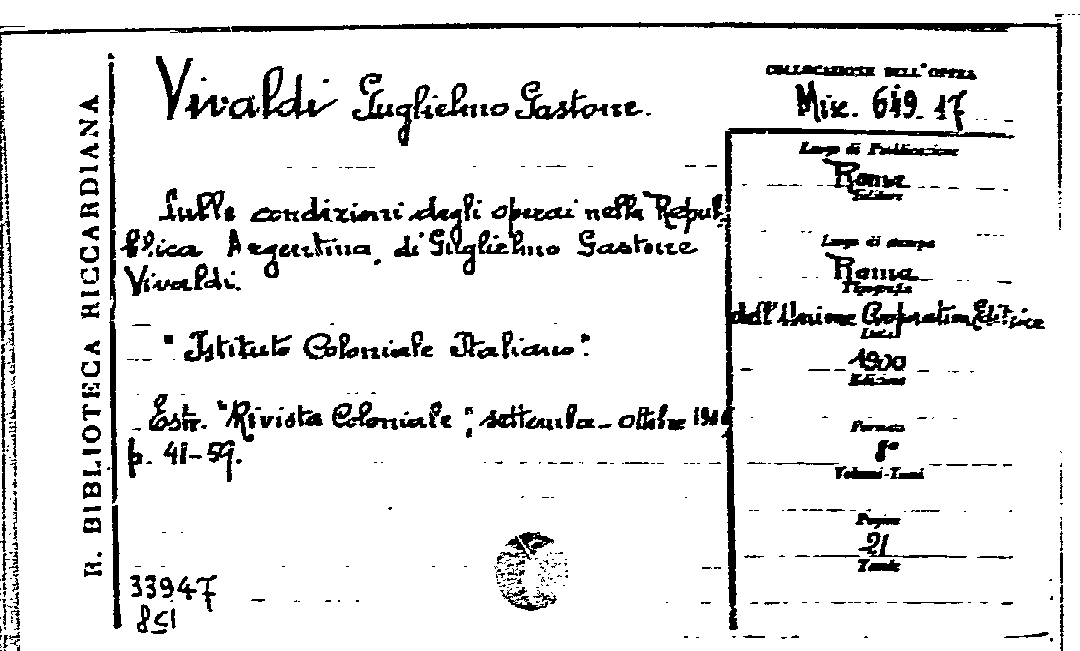 R. BIBLIOTECA RICCARDIANA
Vivaldi Guglielmo Gastone.
Sulle condizioni degli operai nella Repub-
blica Argentina, di Guglielmo Gastone
Vivaldi.
"Istituto Coloniale Italiano".
Estr. "Rivista Coloniale", settembre-ottobre
p. 41-59.
33947
851
COLLOCAZIONE DELL'OPERA
Misc. 649. 17
Luogo di Pubblicazione
Roma
Editore
Luogo di stampa
Roma
Tipografia
dell'Unione Cooperativa Editrice
Data
Edizione
Formato
8°
Volumi-Tomi
Pagine
21
Tavole